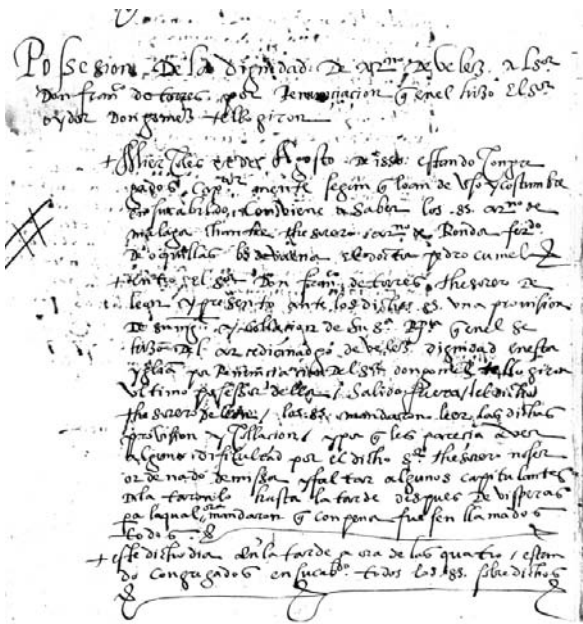 Possesion De la Dignidad De arno De velez al sor
Don franco de torres por Renunciacion q en el hizo El sor
oydor Don gomez tello giron
+ Miercoles De Agosto De estando Congre
gados Capitularmente segun q lo an de Uso y costumbre
en su cabildo, conviene a Saber los ss. arno de
malaga thesorero arno de Ronda
De oquillas de vaena el doctor pedro cumel
+ Entro el sor Don franco de torres thesorero De
leon y presento ante los dichos ss. una provision
De y collacion de Su Sa Rma q en el Se
hizo Del arcedianadgo de velez dignidad en esta
yglia por Renunciacion Del sor don gomez tello giron
Ultimo posessor della / Salido fuera / el dicho
thesorero de leon / los ss. mandaron leer las dichas
provision y Collacion / y pa q les parecia aver
alguna dificultad por el dicho sr. thesorero no ser
ordenado de missa y faltar algunos capitulantes
hasta la tarde despues De visperas
pa la qual ora mandaron q con pena fuesen llamados
todos
+ este dicho dia en la tarde a ora de las quatro / estan
do congregados en su cabdo todos los ss. sobredichos